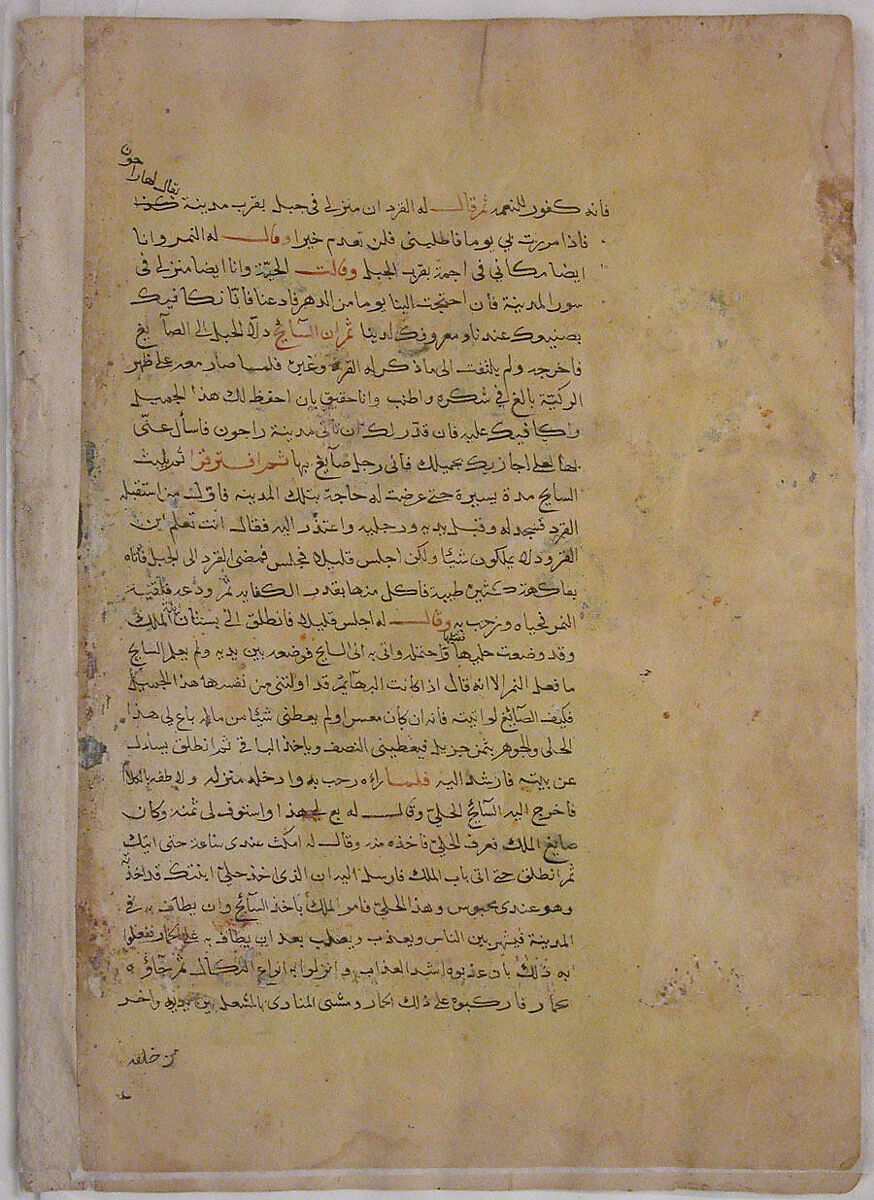 يقال لها راجون
فانه كفور للنعمه ثم قال له القرد ان منزلى فى جبل بقرب مدينة
فاذا مررت بي يوما فاطلبني فلن تعدم خيرا وقال له النمر وانا
ايضا مكاني في اجمة بقرب الجبل وقالت الحية وانا ايضا منزلى فى
سور المدينة فان احتجت الينا يوما من الدهر فادعنا فاتانكافيك
بصنيعك عندنا ومعروفك لدينا ثم ان السائح دلّا الحبل الى الصآيغ
فاخرجه ولم يلتفت الى ما ذكر له القرد وغيره فلما صار معه على ظهر
الركيّة بالغ في شكره واطنب وانا حقيق بان احفظ لك هذا الجميل
واكافيك عليه فان قدّر لك ان تاتى مدينة راجون فاسأل عنّي
لعلي اجازيك بجميلك فانى رجل صآيغ بها ثم افترقا ثم لبث
السايح مدة يسيرة حتى عرضت له حاجة بتلك المدينه فاول من استقبله
القرد فسجد له وقبل يديه ورجليه واعتذر اليه فقال انت تعلم ان
القرود لا يملكون شيئا ولكن اجلس قليلا فجلس فمضى القرد الى الجبل فاتاه
بفاكهة كثيرة طيبة فاكل منها بقدر الكفايه ثم ودعه فلقيه
النمر فحياه ورحب به وقال له اجلس قليلا فانطلق الى بستان الملك
وقد وضعت حليها فقتلها واحتمله واتى به الى السايح فوضعه بين يديه ولم يعلم السايح
ما فعل النمر الا انه قال اذا كانت البهآيم قد اولتني من نفسها هذا الجميل
فكيف الصآيغ لو اتيته فانه ان كان معسرا ولم يعطني شيئا من ماله باع لي هذا
الحلى والجوهر بثمن جزيل فيعطيني النصف وياخذ الباقى ثم انطلق يسال
عن بيته فارشد اليه فلما راه رحب به وادخله منزله ولاطفه بالكلام
فاخرج اليه السآئح الحليّ وقال له بع لي هذا واستوف لى ثمنه وكان
صايغ الملك فعرف الحليّ فاخذه منه وقال له امكث عندى ساعة حتى اتيك
ثم انطلق حتى اتى باب الملك فارسل اليه ان الذى اخذ حليّ ابنتك قد اخذته
وهو عندى محبوس وهذا الحليّ فامر الملك باخذ السآئح وان يطاف به في
المدينة فيشهر بين الناس ويعذب ويصلب بعد ان يطاف به على الحمار ففعلوا
به ذلك بان عذبوه اشد العذاب وانزلوا به انواع النكال ثم جآؤه
بحمار فاركبوه على ذلك الحمار ومشى المنادى بالمشعل بين يديه واخر
من خلفه